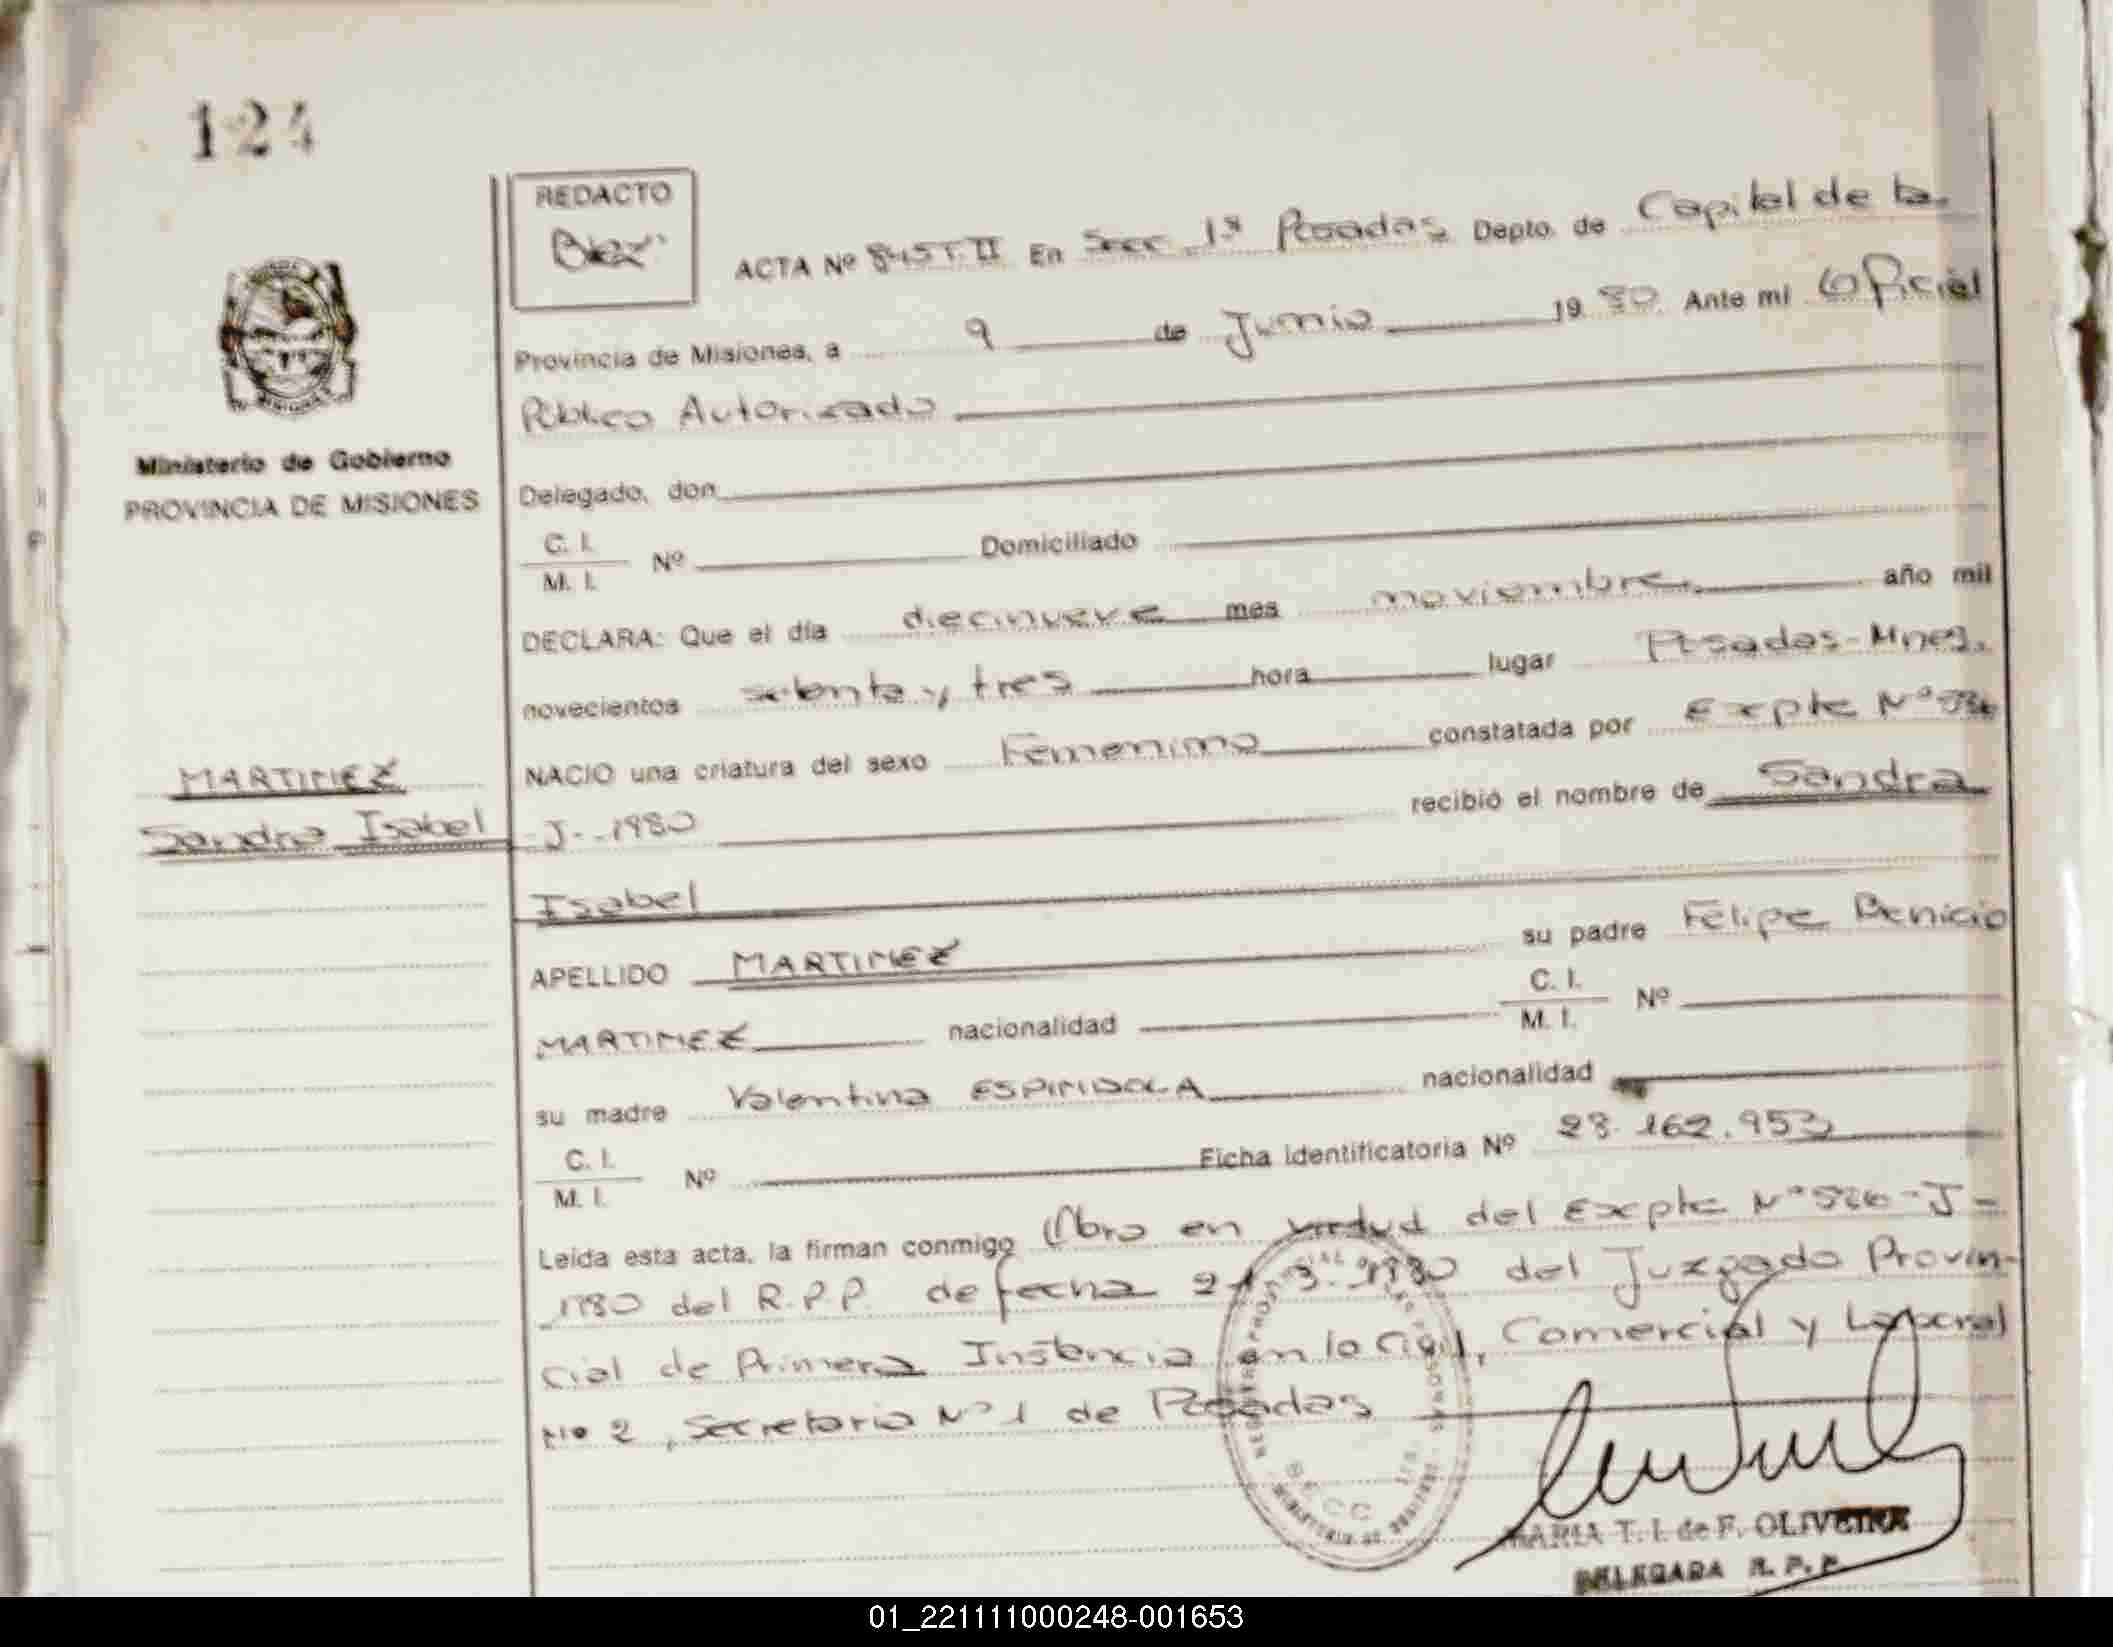 124
REDACTO
ACTA Nº 845 T. II En Secc 1ª Posadas Depto. de Capital de la
Provincia de Misiones, a 9 de Junio 1980. Ante mi Oficial
Público Autorizado
Ministerio de Gobierno
PROVINCIA DE MISIONES
Delegado, don
C. I.
M. I.
Nº Domiciliado
DECLARA: Que el día diecinueve mes noviembre año mil
novecientos setenta y tres hora lugar Posadas-Mnes.
NACIO una criatura del sexo Femenino constatada por Expte Nº
MARTINEZ
Sandra Isabel
-J- 1980 recibió el nombre de Sandra
Isabel
APELLIDO MARTINEZ su padre Felipe Benicio
MARTINEZ nacionalidad C. I.
M. I. Nº
su madre Valentina ESPINDOLA nacionalidad
C. I.
M. I.
Nº Ficha identificatoria Nº 23.162.953
Leída esta acta, la firman conmigo Obra en virtud del Expte Nº 526-J-
1980 del R.P.P. de fecha 3-1980 del Juzgado Provin-
cial de Primera Instancia en lo Civil, Comercial y Laboral
Nº 2, Secretaria Nº 1 de Posadas
MARIA T. I. de F. OLIVEIRA
DELEGADA R. P. P.
01_221111000248-001653